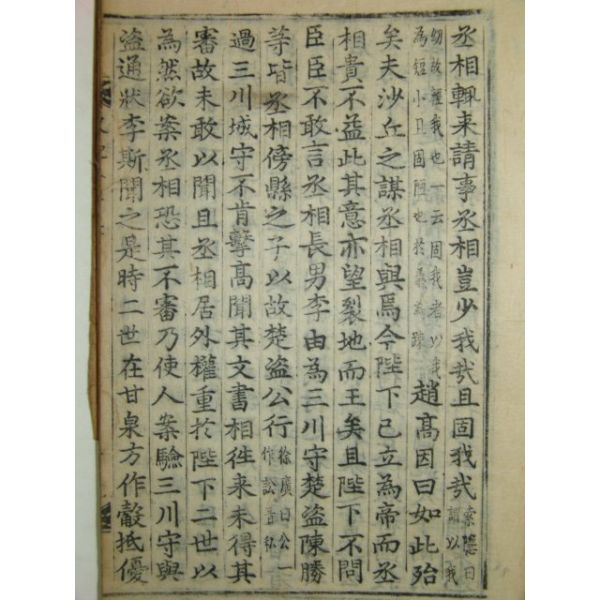 丞相輒来請事丞相豈少我哉且固我哉索隱曰謂以我
幼故輕我也一云固我者以我為短小且固陋也於義為疎趙高因曰如此殆
矣夫沙丘之謀丞相與焉今陛下已立為帝而丞
相貴不益此其意亦望裂地而王矣且陛下不問
臣臣不敢言丞相長男李由為三川守楚盜陳勝
等皆丞相傍縣之子以故楚盜公行徐廣曰公一作訟音
過三川城守不肯擊高聞其文書相往来未得其
審故未敢以聞且丞相居外權重於陛下二世以
為然欲案丞相恐其不審乃使人案驗三川守與
盜通狀李斯聞之是時二世在甘泉方作觳抵優